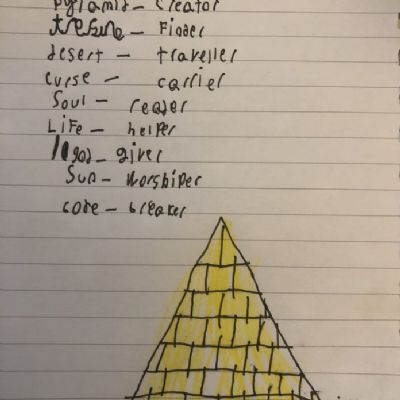 pyramid - creator
tresure - Finder
desert - traveller
curse - carrier
Soul - reader
LiFe - helper
god - giver
Sun - Worshiper
code - breaker